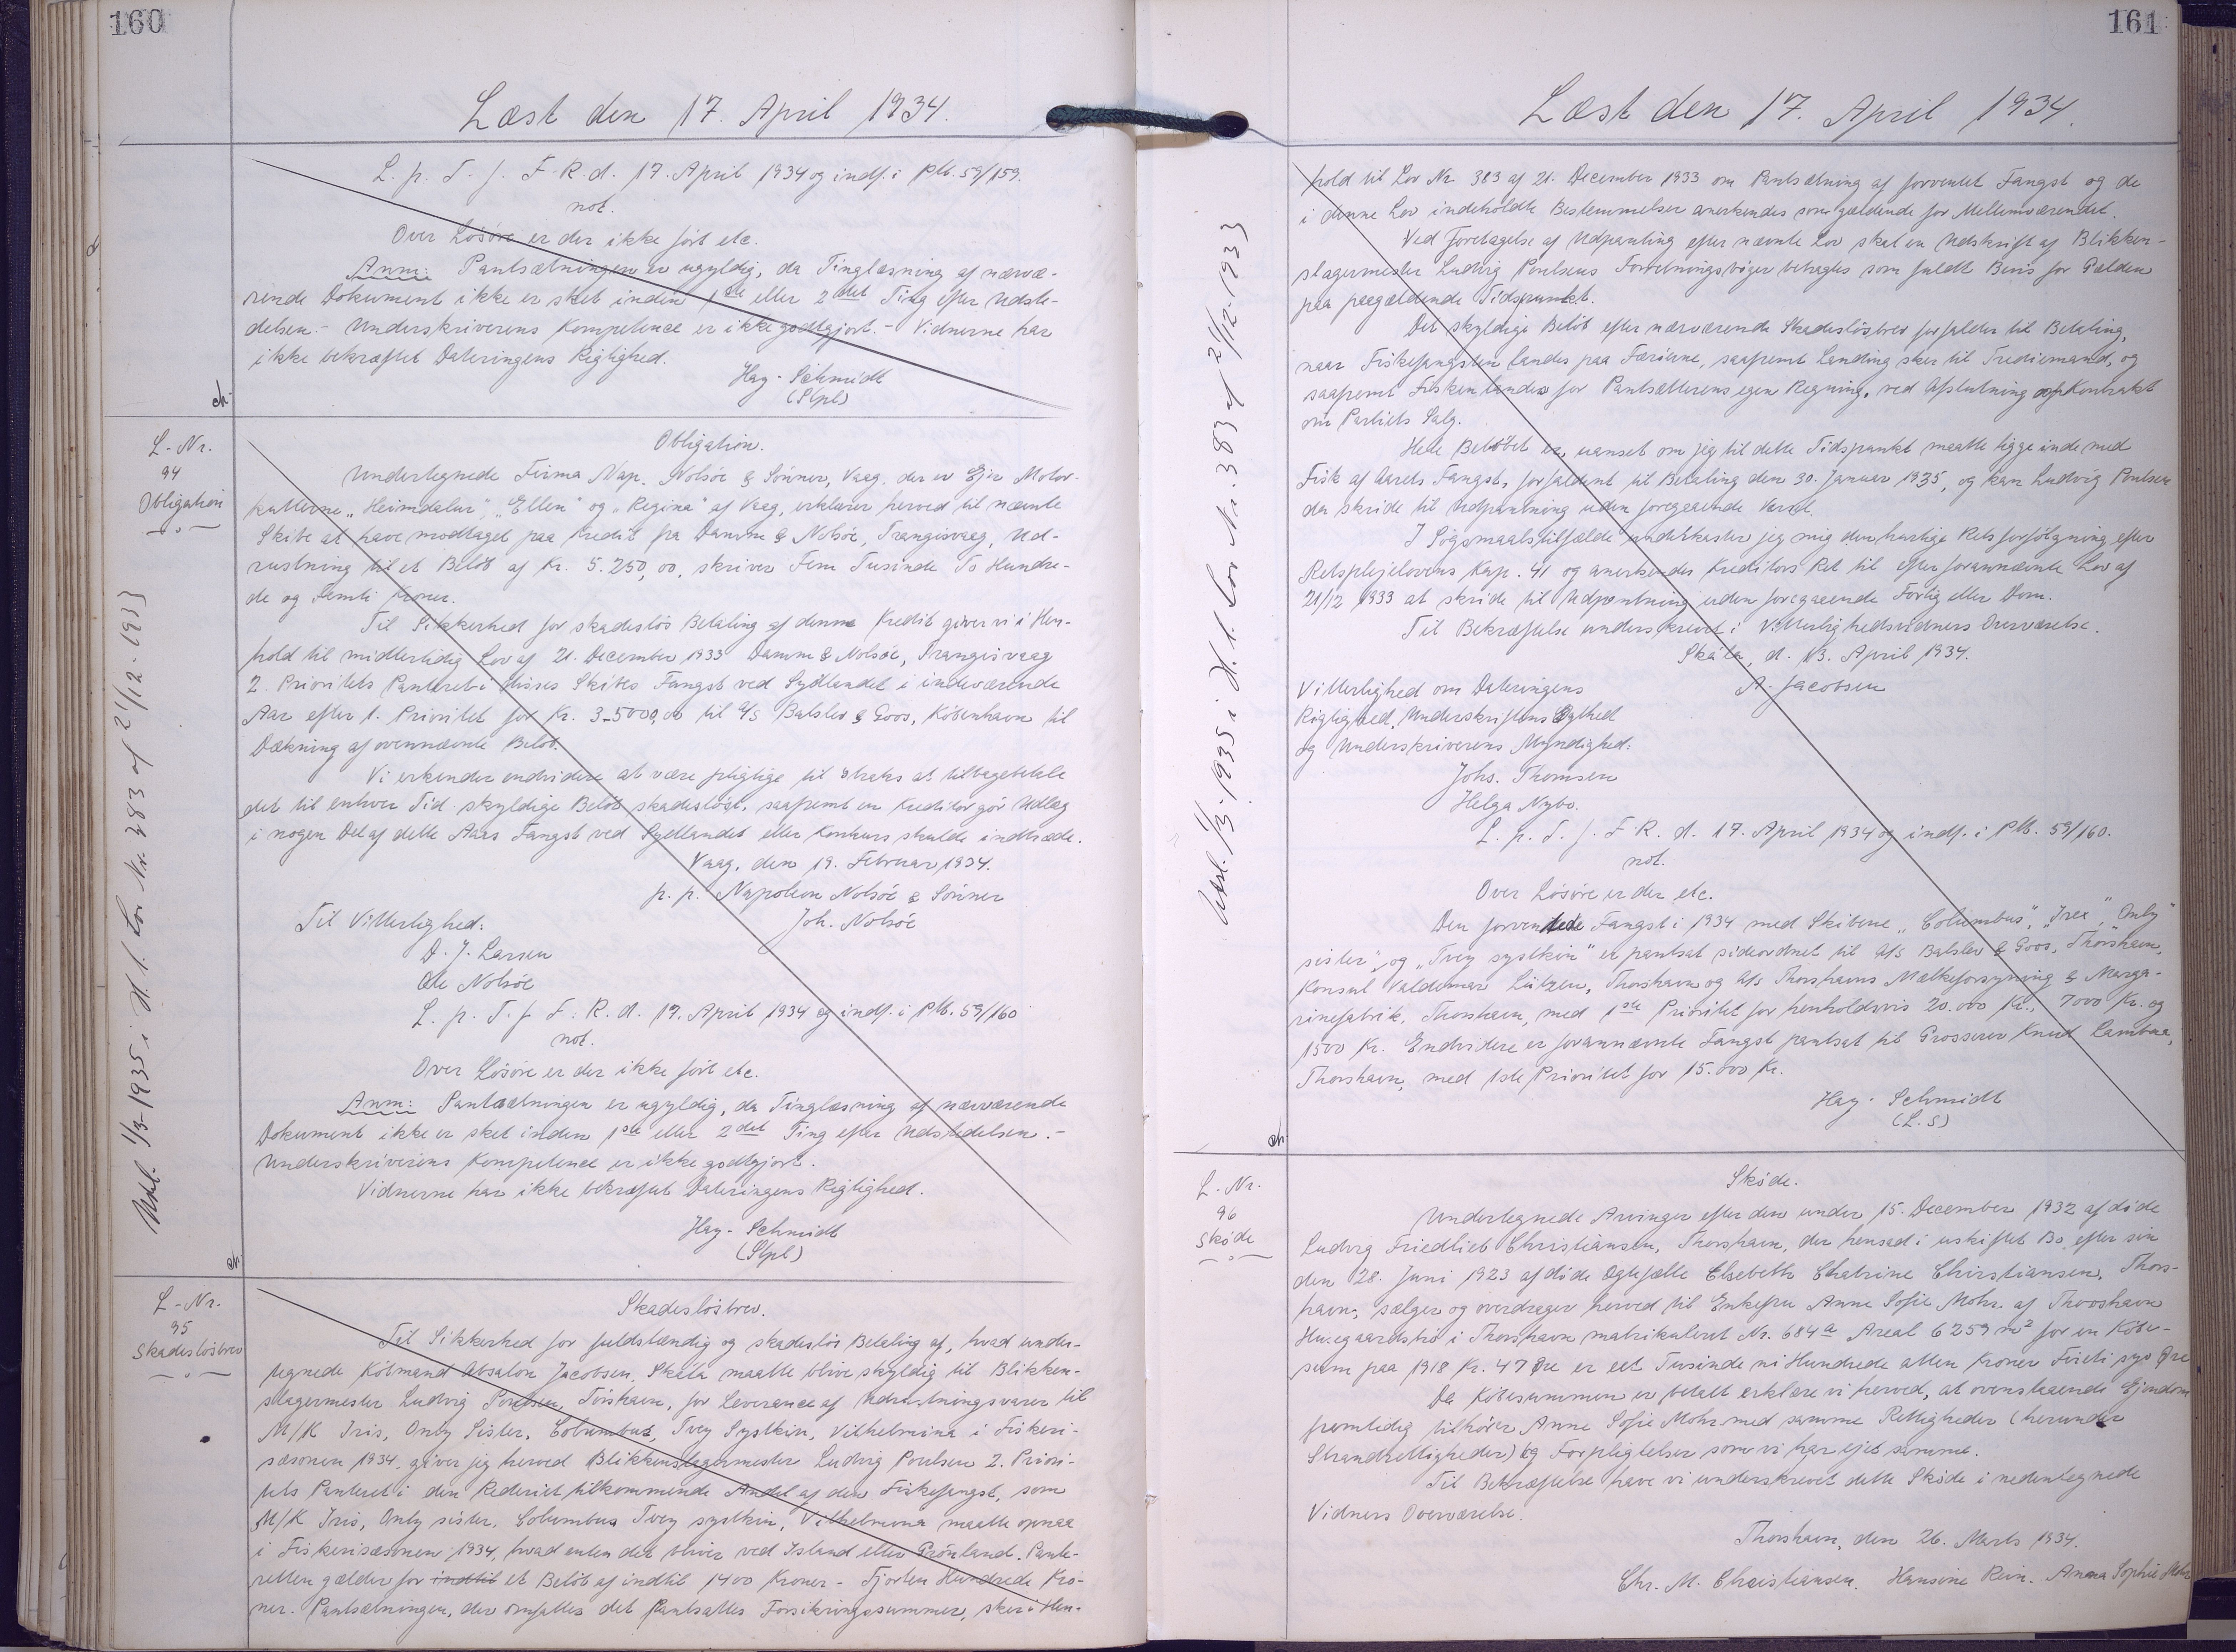 160
Læst den 17. April 1934.
L. p. T. f. F. R. d. 17. April 1934 og indf. i Ptb. 59/159.
not.
Over Lösöre er der ikke fört etc.
Anm: Pantsætningen er ugyldig, da Tinglæsning af nærvæ-
rende Dokument ikke er sket inden 1ste eller 2det Ting efter Udste-
delsen. - Underskriverens Kompetence er ikke godtgjort. - Vidnerne har
ikke bekræftet Dateringens Rigtighed.
Hay-Schmidt
(Stpl)
L-Nr.
94
Obligation
Obligation.
Undertegnede Firma Nap. Nolsöe & Sönner, Vaag, der er Ejer Motor-
kutterne "Heimdalur", "Ellen" og "Regina" af Vaag, erklærer herved til nævnte
Skibe at have modtaget paa Kredit fra Damm & Nolsöe, Trangisvaag, Ud-
rustning til et Belöb af Kr. 5.250,00, skriver Fem Tusinde To Hundre-
de og Femti Kroner.
Til Sikkerhed for skadeslös Betaling af denne Kredit giver vi i Hen-
hold til midlertidig Lov af 21. December 1933 Damm & Nolsöe, Trangisvaag
2. Prioritets Panteret i disses Skibes Fangst ved Sydlandet i indeværende
Aar efter 1. Prioritet for Kr. 3-5000,00 til A/S Balslev & Goos, Köbenhavn til
Dækning af ovennævnte Belöb.
Vi erkender endvidere at være pligtige til straks at tilbagebetale
det til enhver Tid skyldige Belöb skadeslöst, saafremt en Kreditor gör Udlæg
i nogen Del af dette Aars Fangst ved Sydlandet eller Konkurs skulde indtræde.
Vaag, den 19. Februar 1934.
p. p. Napoleon Nolsöe & Sönner
Joh. Nolsöe
Til Vitterlighed:
D. J. Larsen
Ole Nolsöe
L. p. T. f. F. R. d. 17. April 1934 og indf. i Ptb. 59/160
not.
Over Lösöre er der ikke fört etc.
Anm: Pantsætningen er ugyldig, da Tinglæsning af nærværende
Dokument ikke er sket inden 1ste eller 2det Ting efter Udstedelsen. -
Underskriverens Kompetence er ikke godtgjort.
Vidnerne har ikke bekræftet Dateringens Rigtighed.
Hay-Schmidt
(Stpl)
Udsl. 1/3-1935 i H. t. Lov Nr. 383 af 21/12-1933
L-Nr.
95
Skadeslösbrev
Skadeslösbrev.
Til Sikkerhed for fuldstændig og skadeslös Betaling af, hvad under-
tegnede Köbmand Absalon Jacobsen, Skála maatte blive skyldig til Blikken-
slagermester Ludvig Poulsen, Tórshavn, for Leverance af Udrustningsvarer til
M/K Iris, Only Sister, Columbus, Tvey Systkin, Vilhelmina i Fiskeri-
sæsonen 1934, giver jeg herved Blikkenslagermester Ludvig Poulsen 2. Priori-
tets Panteret i den Rederiet tilkommende Andel af den Fiskefangst, som
M/K Iris, Only sister, Columbus Tvey systkin, Vilhelmina maatte opnaa
i Fiskerisæsonen 1934, hvad enten det bliver ved Island eller Grönland. Pante-
retten gælder for indtil et Belöb af indtil 1400 Kroner - Fjorten Hundrede Kro-
ner. Pantsætningen, der omfatter det pantsattes Forsikringssummer, sker i Hen-
161
Læst den 17. April 1934.
hold til Lov Nr. 383 af 21. December 1933 om Pantsætning af forventet Fangst og de
i denne Lov indeholdte Bestemmelser anerkendes som gældende for Mellemværendet.
Ved Foretagelse af Udpantning efter nævnte Lov skal en Udskrift af Blikken-
slagermester Ludvig Poulsens Forretningsböger betragtes som fuldt Bevis for Gælden
paa paagældende Tidspunkt.
Det skyldige Belöb efter nærværende Skadeslösbrev forfalder til Betaling,
naar Fiskefangsten landes paa Færöerne, saafremt Landing sker til Trediemand, og
saafremt Fisken landes for Pantsætterens egen Regning, ved Afslutning af Kontrakt
om Partiets Salg.
Hele Belöbet er, uanset om jeg til dette Tidspunkt maatte ligge inde med
Fisk af Aarets Fangst, forfaldent til Betaling den 30. Januar 1935, og kan Ludvig Poulsen
da skride til Udpantning uden foregaaende Varsel.
I Sögsmaalstilfælde underkaster jeg mig den hurtige Retsforfölgning efter
Retsplejelovens Kap. 41 og anerkendes Kreditors Ret til efter forannævnte Lov af
21/12 1933 at skride til Udpantning uden foregaaende Forlig eller Dom.
Til Bekræftelse underskrevet i Vitterlighedsvidners Overværelse.
Skála, d. 13. April 1934.
A. Jacobsen
Vitterlighed om Dateringens
Rigtighed, Underskriftens Ægthed
og Underskriverens Myndighed:
Johs. Thomsen
Helga Nybo.
L. p. T. f. F. R. d. 17. April 1934 og indf. i Ptb. 59/160.
not.
Over Lösöre er der etc.
Den forventede Fangst i 1934 med Skibene "Columbus", "Irex", "Only
sister", og "Tvey systkin" er pantsat sideordnet til A/S Balslev & Goos, Thorshavn,
Konsul Valdemar Lützen, Thorshavn og A/S Thorshavns Mælkeforsyning & Marga-
rinefabrik, Thorshavn, med 1ste Prioritet for henholdsvis 20.000 Kr., 7000 Kr. og
1500 Kr. Endvidere er forannævnte Fangst pantsat til Grosserer Knud Lambaa,
Thorshavn, med 1ste Prioritet for 15.000 Kr.
Hay-Schmidt
(L.S)
Udsl. 1/3-1935 i H. t. Lov Nr. 383 af 21/12-1933
L-Nr.
96
Sköde
Sköde.
Undertegnede Arvinger efter den under 15. December 1932 afdöde
Ludvig Friedlieb Christiansen, Thorshavn, der hensad i uskiftet Bo efter sin
den 28. Juni 1923 afdöde Ægtefælle Elsebeth Chatrine Christiansen, Thors-
havn, sælger og overdrager herved til Enkefru Anne Sofie Mohr af Thorshavn
Husegaardströ i Thorshavn matrikuleret Nr. 684a Areal 6259 m² for en Köbe-
sum paa 1918 Kr. 47 Øre er eet Tusinde ni Hundrede atten Kroner Förti syv Øre
Da Köbesummen er betalt erklære vi herved, at ovenstaaende Ejendom
fremtidig tilhörer Anne Sofie Mohr med samme Rettigheder (herunder
Strandrettigheder) og Forpligtelser som vi har ejet samme.
Til Bekræftelse have vi underskrevet dette Sköde i nedentegnede
Vidners Overværelse.
Thorshavn, den 26. Marts 1934.
Chr. M. Christiansen. Hansine Rein. Anna Sophie Mohr